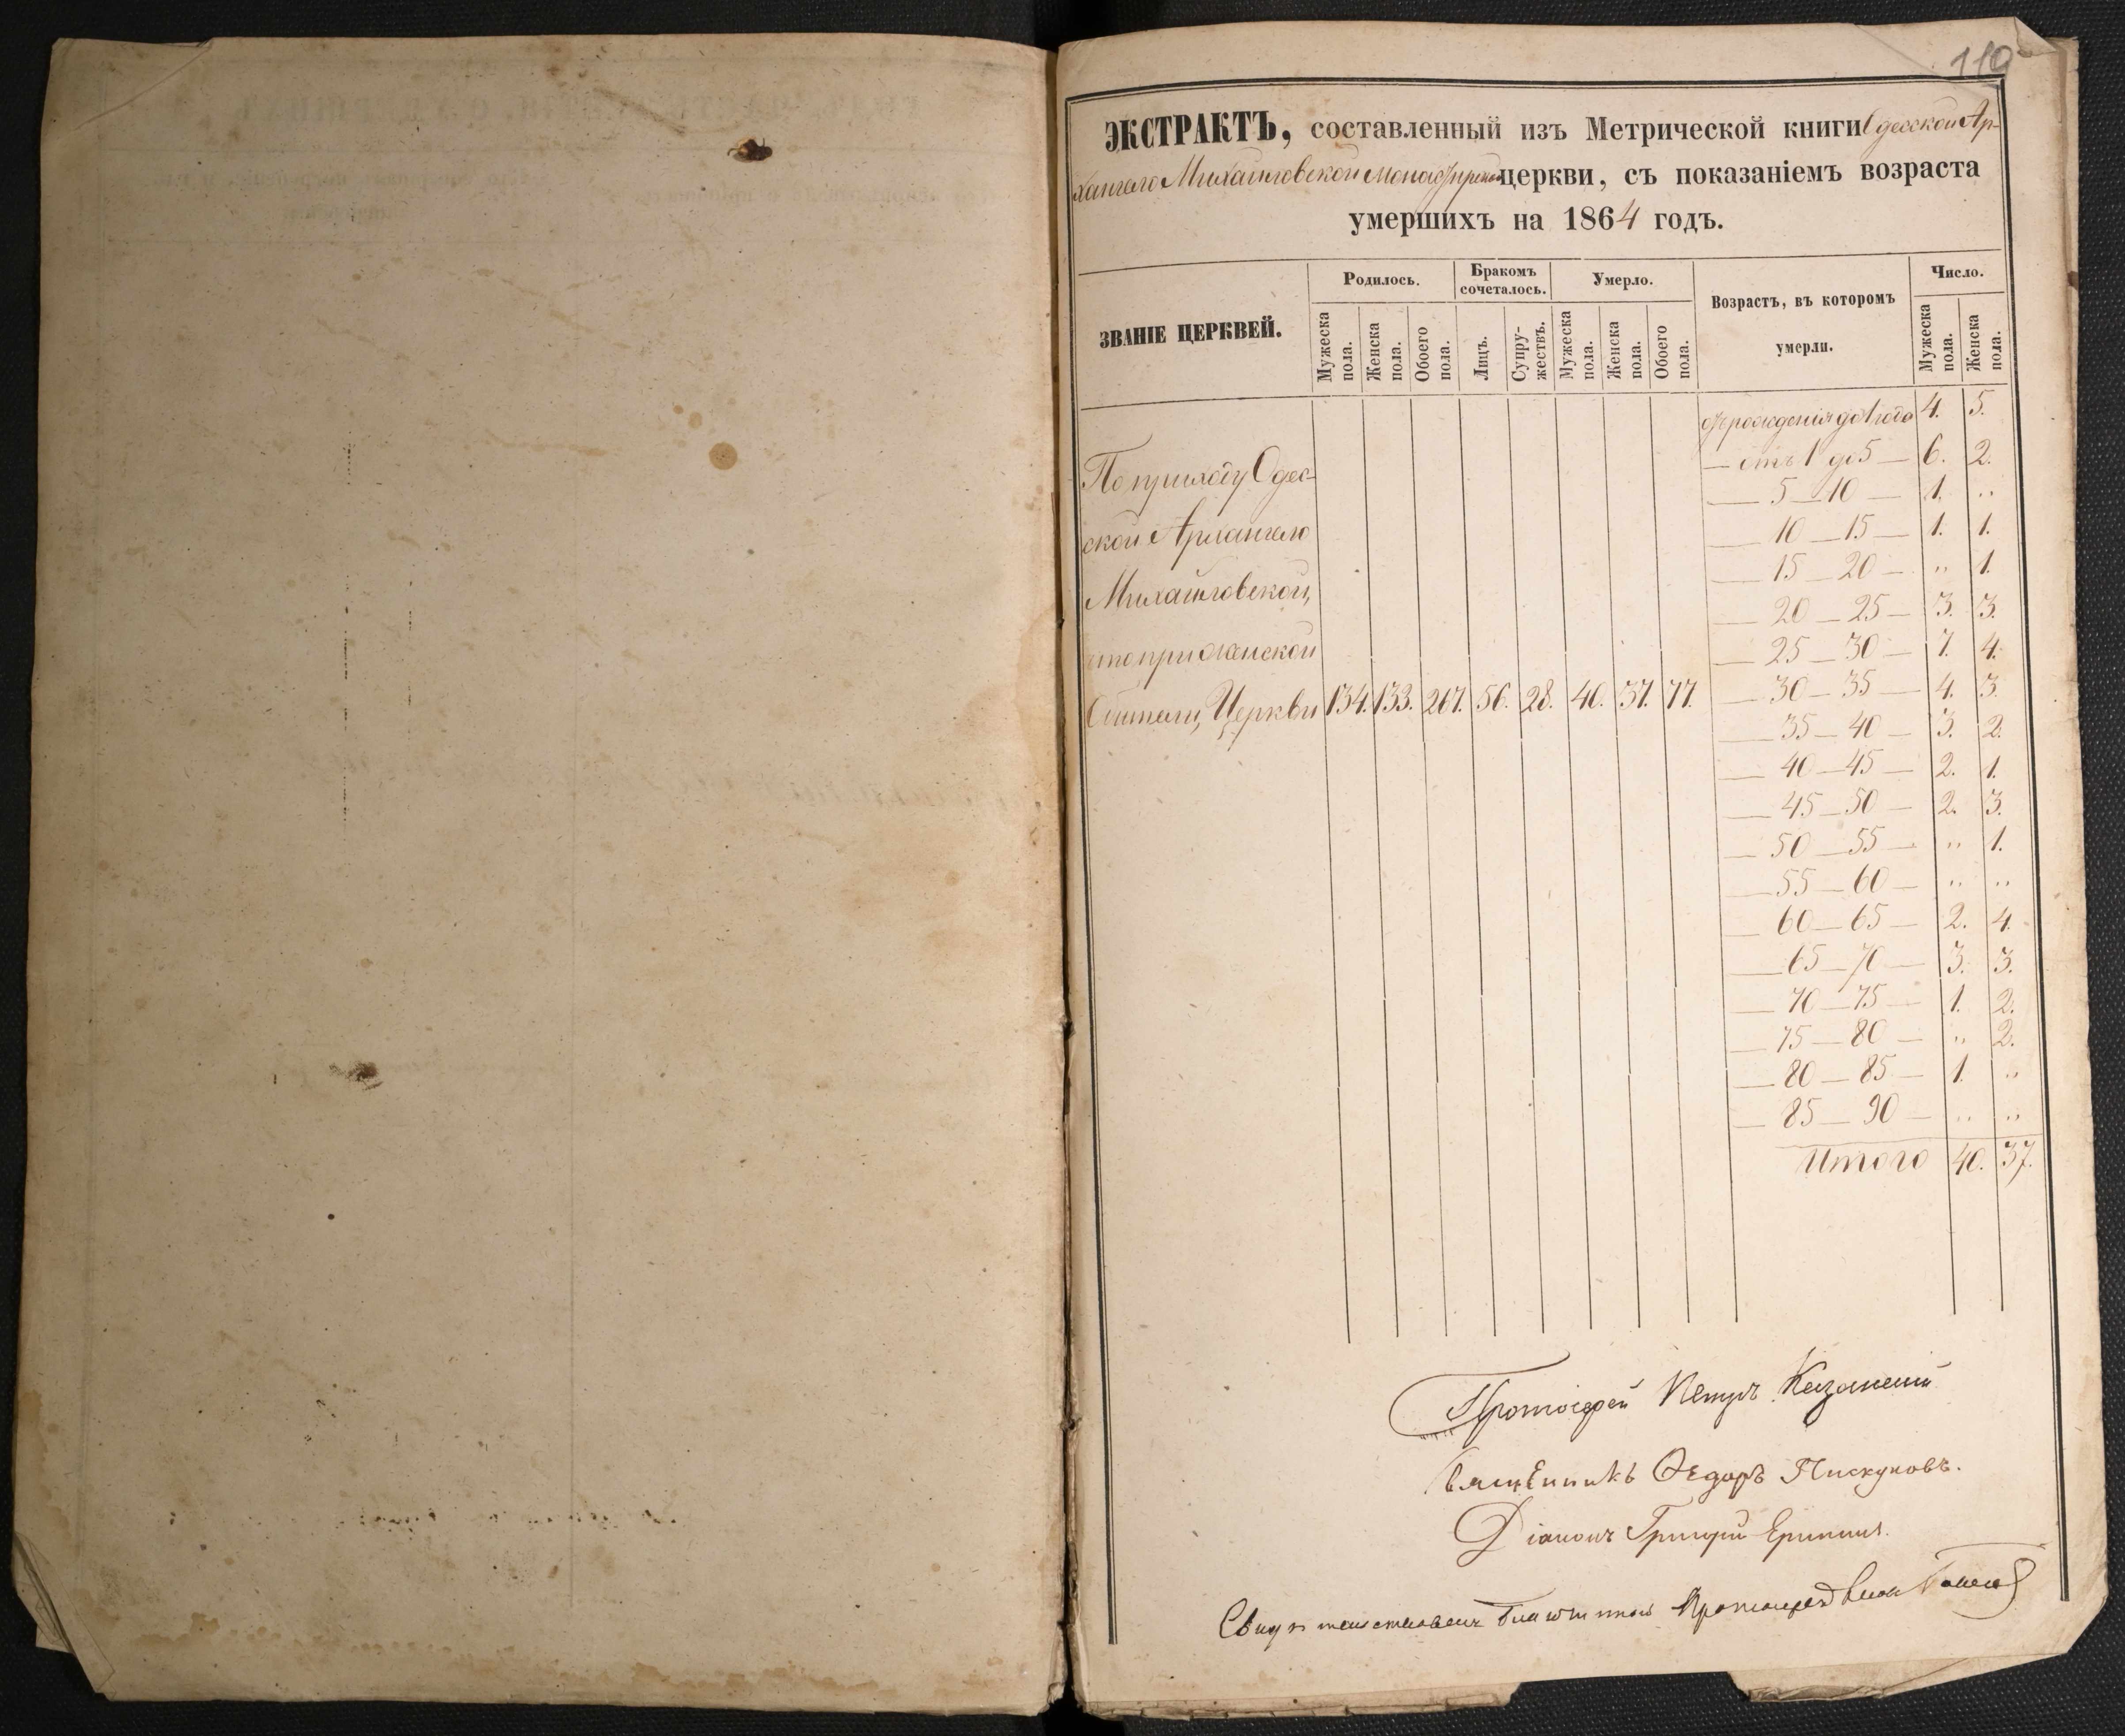 110
ЭКСТРАКТЪ, составленный изъ Метрической книги Одесской Ар-
хангело Михайловской монастырской церкви, съ показаніемъ возраста
умершихъ на 1864 годъ.
ЗВАНІЕ ЦЕРКВЕЙ.
Родилось.
Бракомъ сочеталось.
Умерло.
Возрастъ, въ которомъ умерли.
Число.
Мужеска пола.
Женска пола.
Обоего пола.
Лицъ.
Супру-жествъ.
Мужеска пола.
Женска пола.
Обоего пола.
Мужеска пола.
Женска пола.
отъ рожденія до 1 года 4. 5.
— отъ 1 до 5 — 6. 2.
— 5 — 10 — 1. „
— 10 — 15 — 1. 1.
— 15 — 20 — „ 1.
— 20 — 25 — 3. 3.
— 25 — 30 — 7. 4.
— 30 — 35 — 4. 3.
— 35 — 40 — 3. 2.
— 40 — 45 — 2. 1.
— 45 — 50 — 2. 3.
— 50 — 55 — „ 1.
— 55 — 60 — „ „
— 60 — 65 — 2. 4.
— 65 — 70 — 3. 3.
— 70 — 75 — 1. 2.
— 75 — 80 — „ 2.
— 80 — 85 — 1. „
— 85 — 90 — „ „
Итого 40. 37.
По приходу Одес-
ской Архангело
Михайловской,
что при женской
Обители, Церкви 134. 133. 267. 56. 28. 40. 37. 77.
Протоіерей Петръ Казанскій
Священникъ Ѳедоръ Пискуновъ.
Діаконъ Григорій
Свидѣтельствовалъ Благочинный Протоіерей